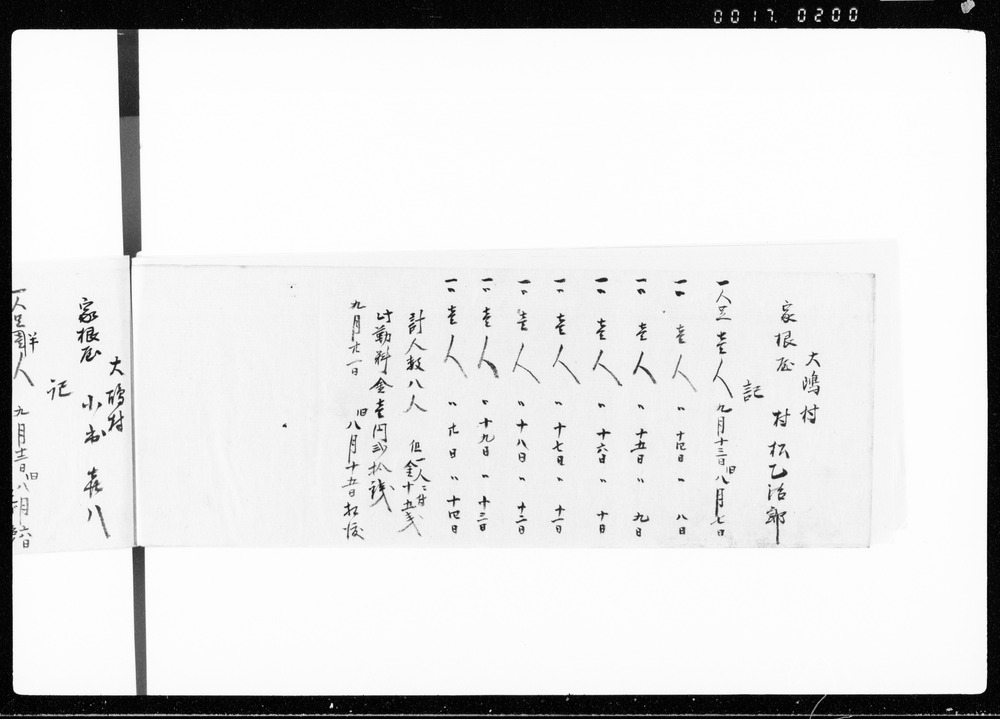 0017. 0200
大嶋村
家根屋 村松乙治郎
記
一人足 壱人 九月十三日 旧八月七日
一〃 壱人 〃 十四日 〃 八日
一〃 壱人 〃 十五日 〃 九日
一〃 壱人 〃 十六日 〃 十日
一〃 壱人 〃 十七日 〃 十一日
一〃 壱人 〃 十八日 〃 十二日
一〃 壱人 〃 十九日 〃 十三日
一〃 壱人 〃 廿日 〃 十四日
計人数八人 但一人ニ付金十五銭
此勤料金壱円弐拾銭
九月廿一日 旧八月十五日払渡
大嶋村
家根屋 小 喜八
記
一人足 半人 九月十二日 旧八月六日